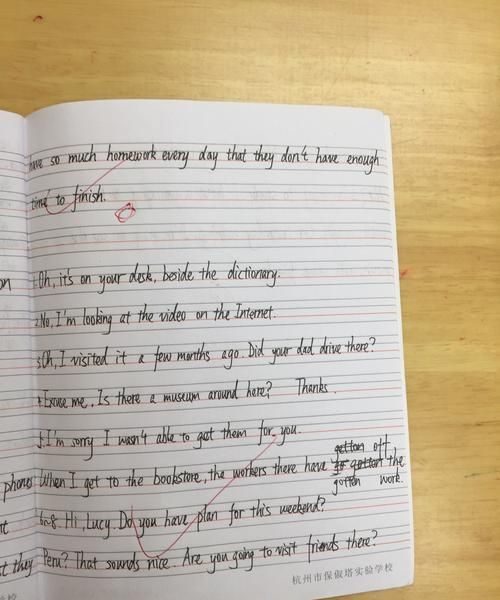 have so much homework every day that they don't have enough
time to finish.
1.Oh, it's on your desk, beside the dictionary.
2.No, I'm looking at the video on the Internet.
3.Oh, I visited it a few months ago. Did your dad drive there?
4.Excuse me, Is there a museum around here? Thanks.
5.I'm sorry I wasn't able to get them for you.
on
phones
When I get to the bookstore, the workers there have gotten off the
gotten work.
6~8. Hi, Lucy. Do you have plan for this weekend?
Peru? That sounds nice. Are you going to visit friends there?
t they
杭州市保俶塔实验学校
学校